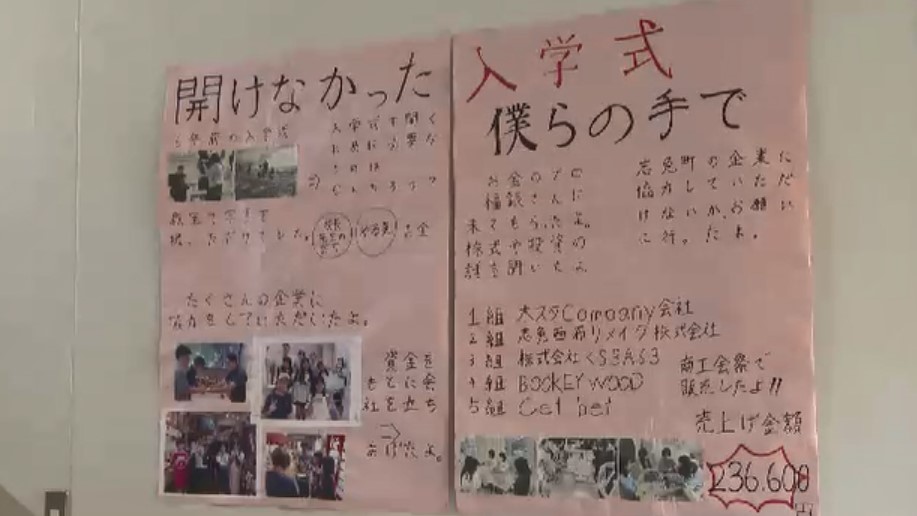 開けなかった
6年前の入学式
入学式を開く
ために必要な
ものは
なんだろう?
教室で写真を
撮ったりでした。
校長
先生の
許可
やる気
お金
たくさんの企業に
協力をしていただいたよ。
資金を
もとに会
社を立ち
あげたよ。
入学式
僕らの手で
お金のプロ
福談さんに
来てもらったよ。
株式や投資の
話を聞いたよ
志免町の企業に
協力していただ
けないか、お願い
に行ったよ。
1組 大スタCompany会社
2組 志免西希リメイク株式会社
3組 株式会社くS3AS3
4組 BOOKEY WOOD
5組 Cet bet
商工会祭で
販売したよ!!
売上げ金額
236.600
円